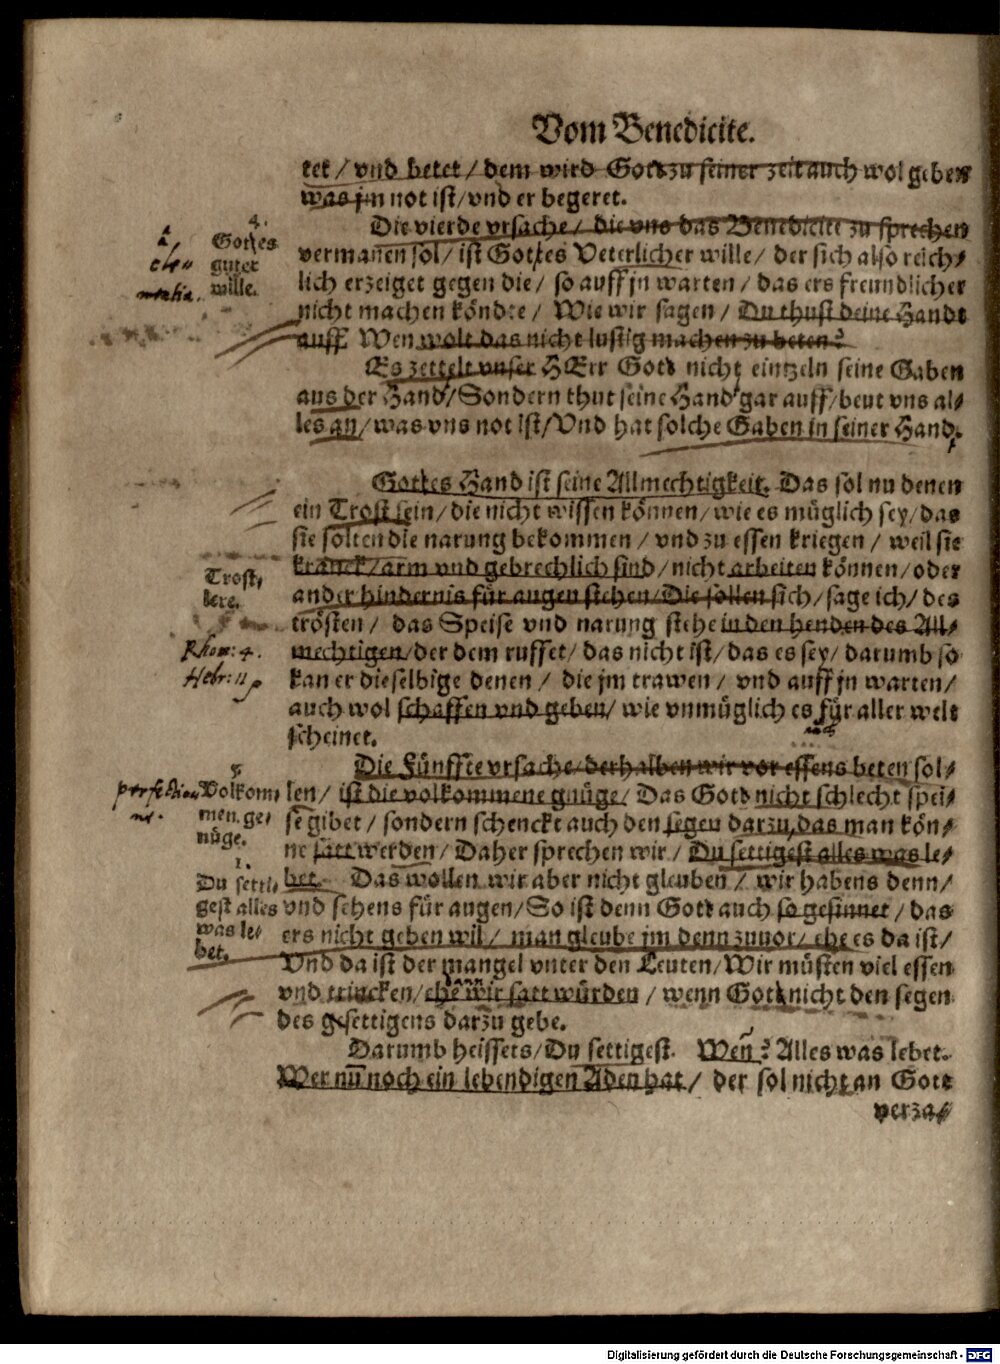 Vom Benedicite.
tet / vnd betet / dem wird Gott zu seiner zeit auch wol geben
was jm not ist / vnd er begeret.
4.
Gottes
guter
wille.
Die vierde vrsache / die vns das Benedicite zu sprechen
vermanen sol / ist Gottes Veterlicher wille / der sich also reich/
lich erzeiget gegen die / so auff jn warten / das ers freundlicher
nicht machen köndte / Wie wir sagen / Du thust deine Handt
auff. Wen wolt das nicht lustig machen zu beten?
Es zettelt vnser HErr Gott nicht eintzeln seine Gaben
aus der Hand / Sondern thut seine Hand gar auff / beut vns al/
les an / was vns not ist / Vnd hat solche Gaben in seiner Hand.
Gottes Hand ist seine Allmechtigkeit. Das sol nu denen
ein Trost sein / die nicht wissen können / wie es müglich sey / das
sie solten die narung bekommen / vnd zu essen kriegen / weil sie
Trost,
lere.
kranck / arm vnd gebrechlich sind / nicht arbeiten können / oder
ander hindernis für augen stehen / Die sollen sich / sage ich / des
trösten / das Speise vnd narung stehe in den henden des All/
Rhom: 4.
Hebr: 11
mechtigen / der dem ruffet / das nicht ist / das es sey / darumb so
kan er dieselbige denen / die jm trawen / vnd auff jn warten /
auch wol schaffen vnd geben / wie vnmüglich es für aller welt
auch
scheinet.
5.
Volkom/
men. ge/
nüge.
Die Fünffte vrsache / derhalben wir vor essens beten sol/
len / ist die volkommene gnüge / Das Gott nicht schlecht spei/
se gibet / sondern schenckt auch den segen darzu, das man kön/
ne satt werden / Daher sprechen wir / Du settigest alles was le/
1.
Du setti/
gest alles
was le/
bet.
bet. Das wollen wir aber nicht gleuben / wir habens denn /
vnd sehens für augen / So ist denn Gott auch so gesinnet / das
ers nicht geben wil / man gleube jm denn zuuor / ehe es da ist /
Vnd da ist der mangel vnter den Leuten / Wir müsten viel essen
vnd trincken / ehe wir satt würden / wenn Gott nicht den segen
des gesettigens darzu gebe.
Darumb heissets / Du settigest. Wen? Alles was lebet.
Wer nu noch ein lebendigen Aden hat / der sol nicht an Gott
verza/
Digitalisierung gefördert durch die Deutsche Forschungsgemeinschaft - DFG